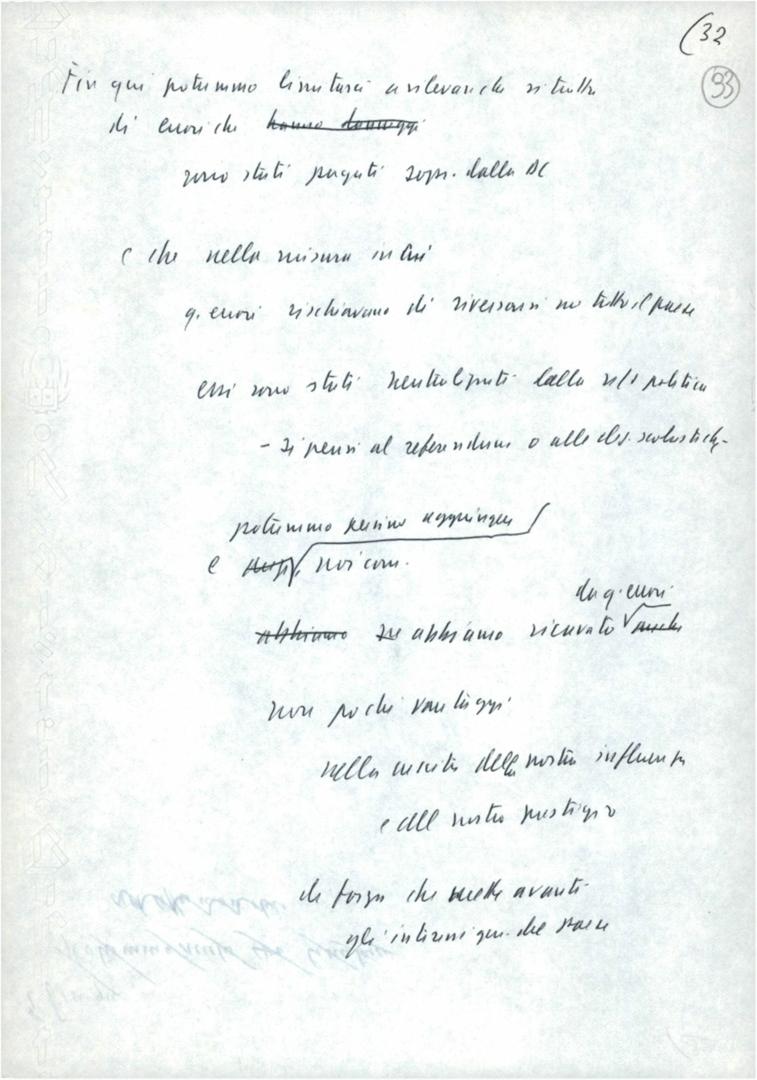 (32
93
Fin qui potremmo limitarci a rilevare che si tratta
di errori che hanno danneggi
sono stati pagati sopr. dalla DC
e che nella misura in cui
q. errori rischiavano di riversarsi su tutto il paese
essi sono stati neutralizzati dalla politica
- si pensi al referendum o alle elez. scolastiche -
potremmo persino aggiungere
e noi com.
da q. errori
abbiamo ne abbiamo ricavato anche
non pochi vantaggi
nella crescita della nostra influenza
e del nostro prestigio
di forza che mette avanti
gli interessi gen. del paese